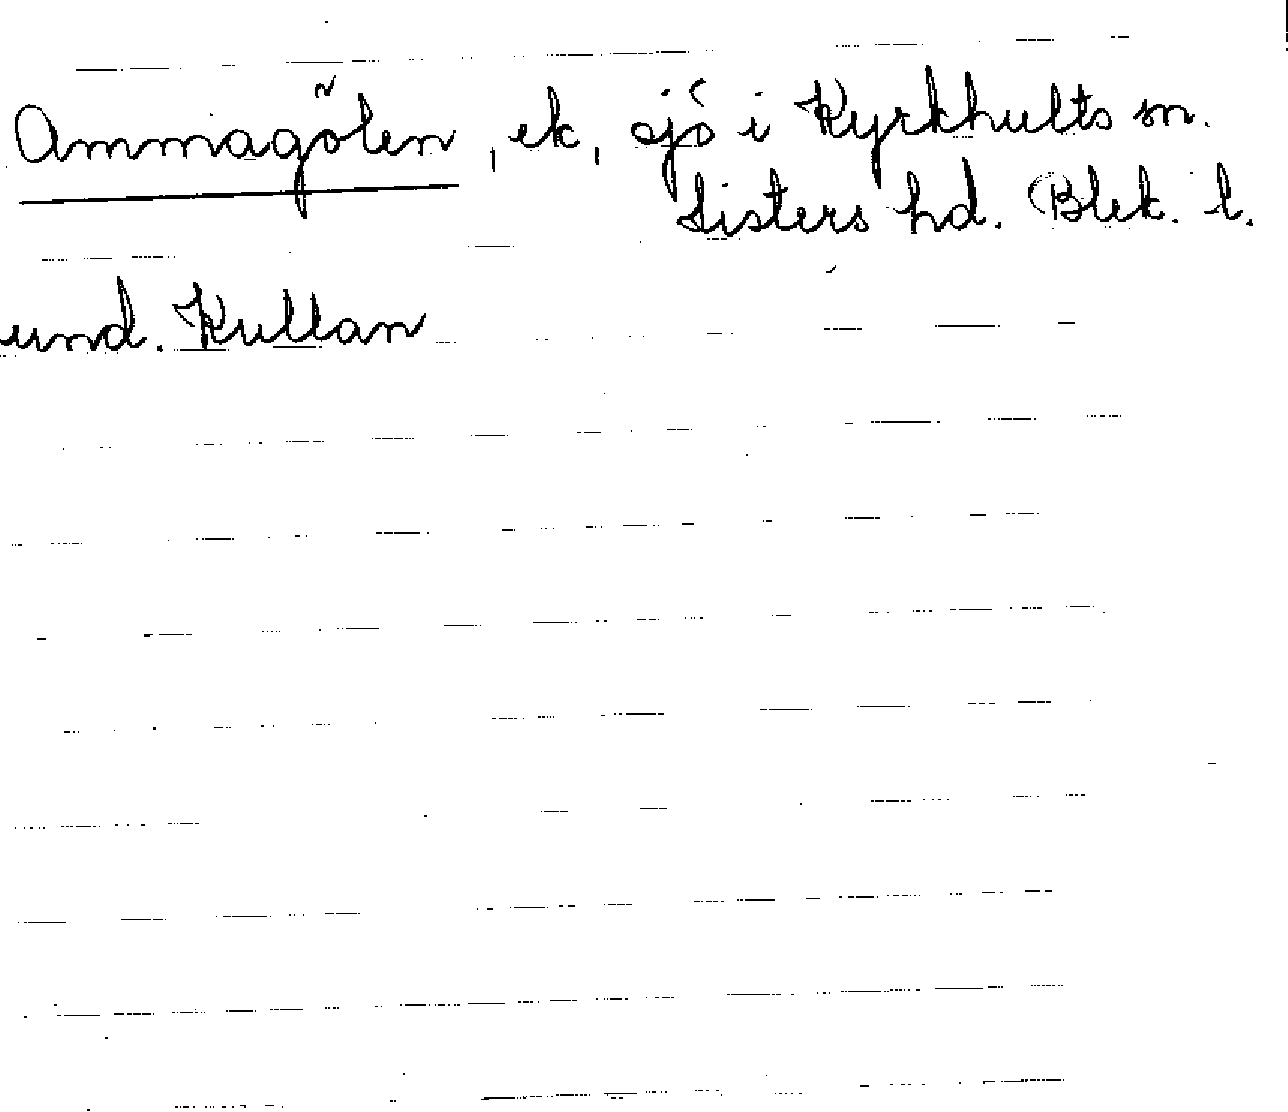 Ammagölen, ek, sjö i Kyrkhults sn.
Listers hd. Blek. l.
und. Kullan